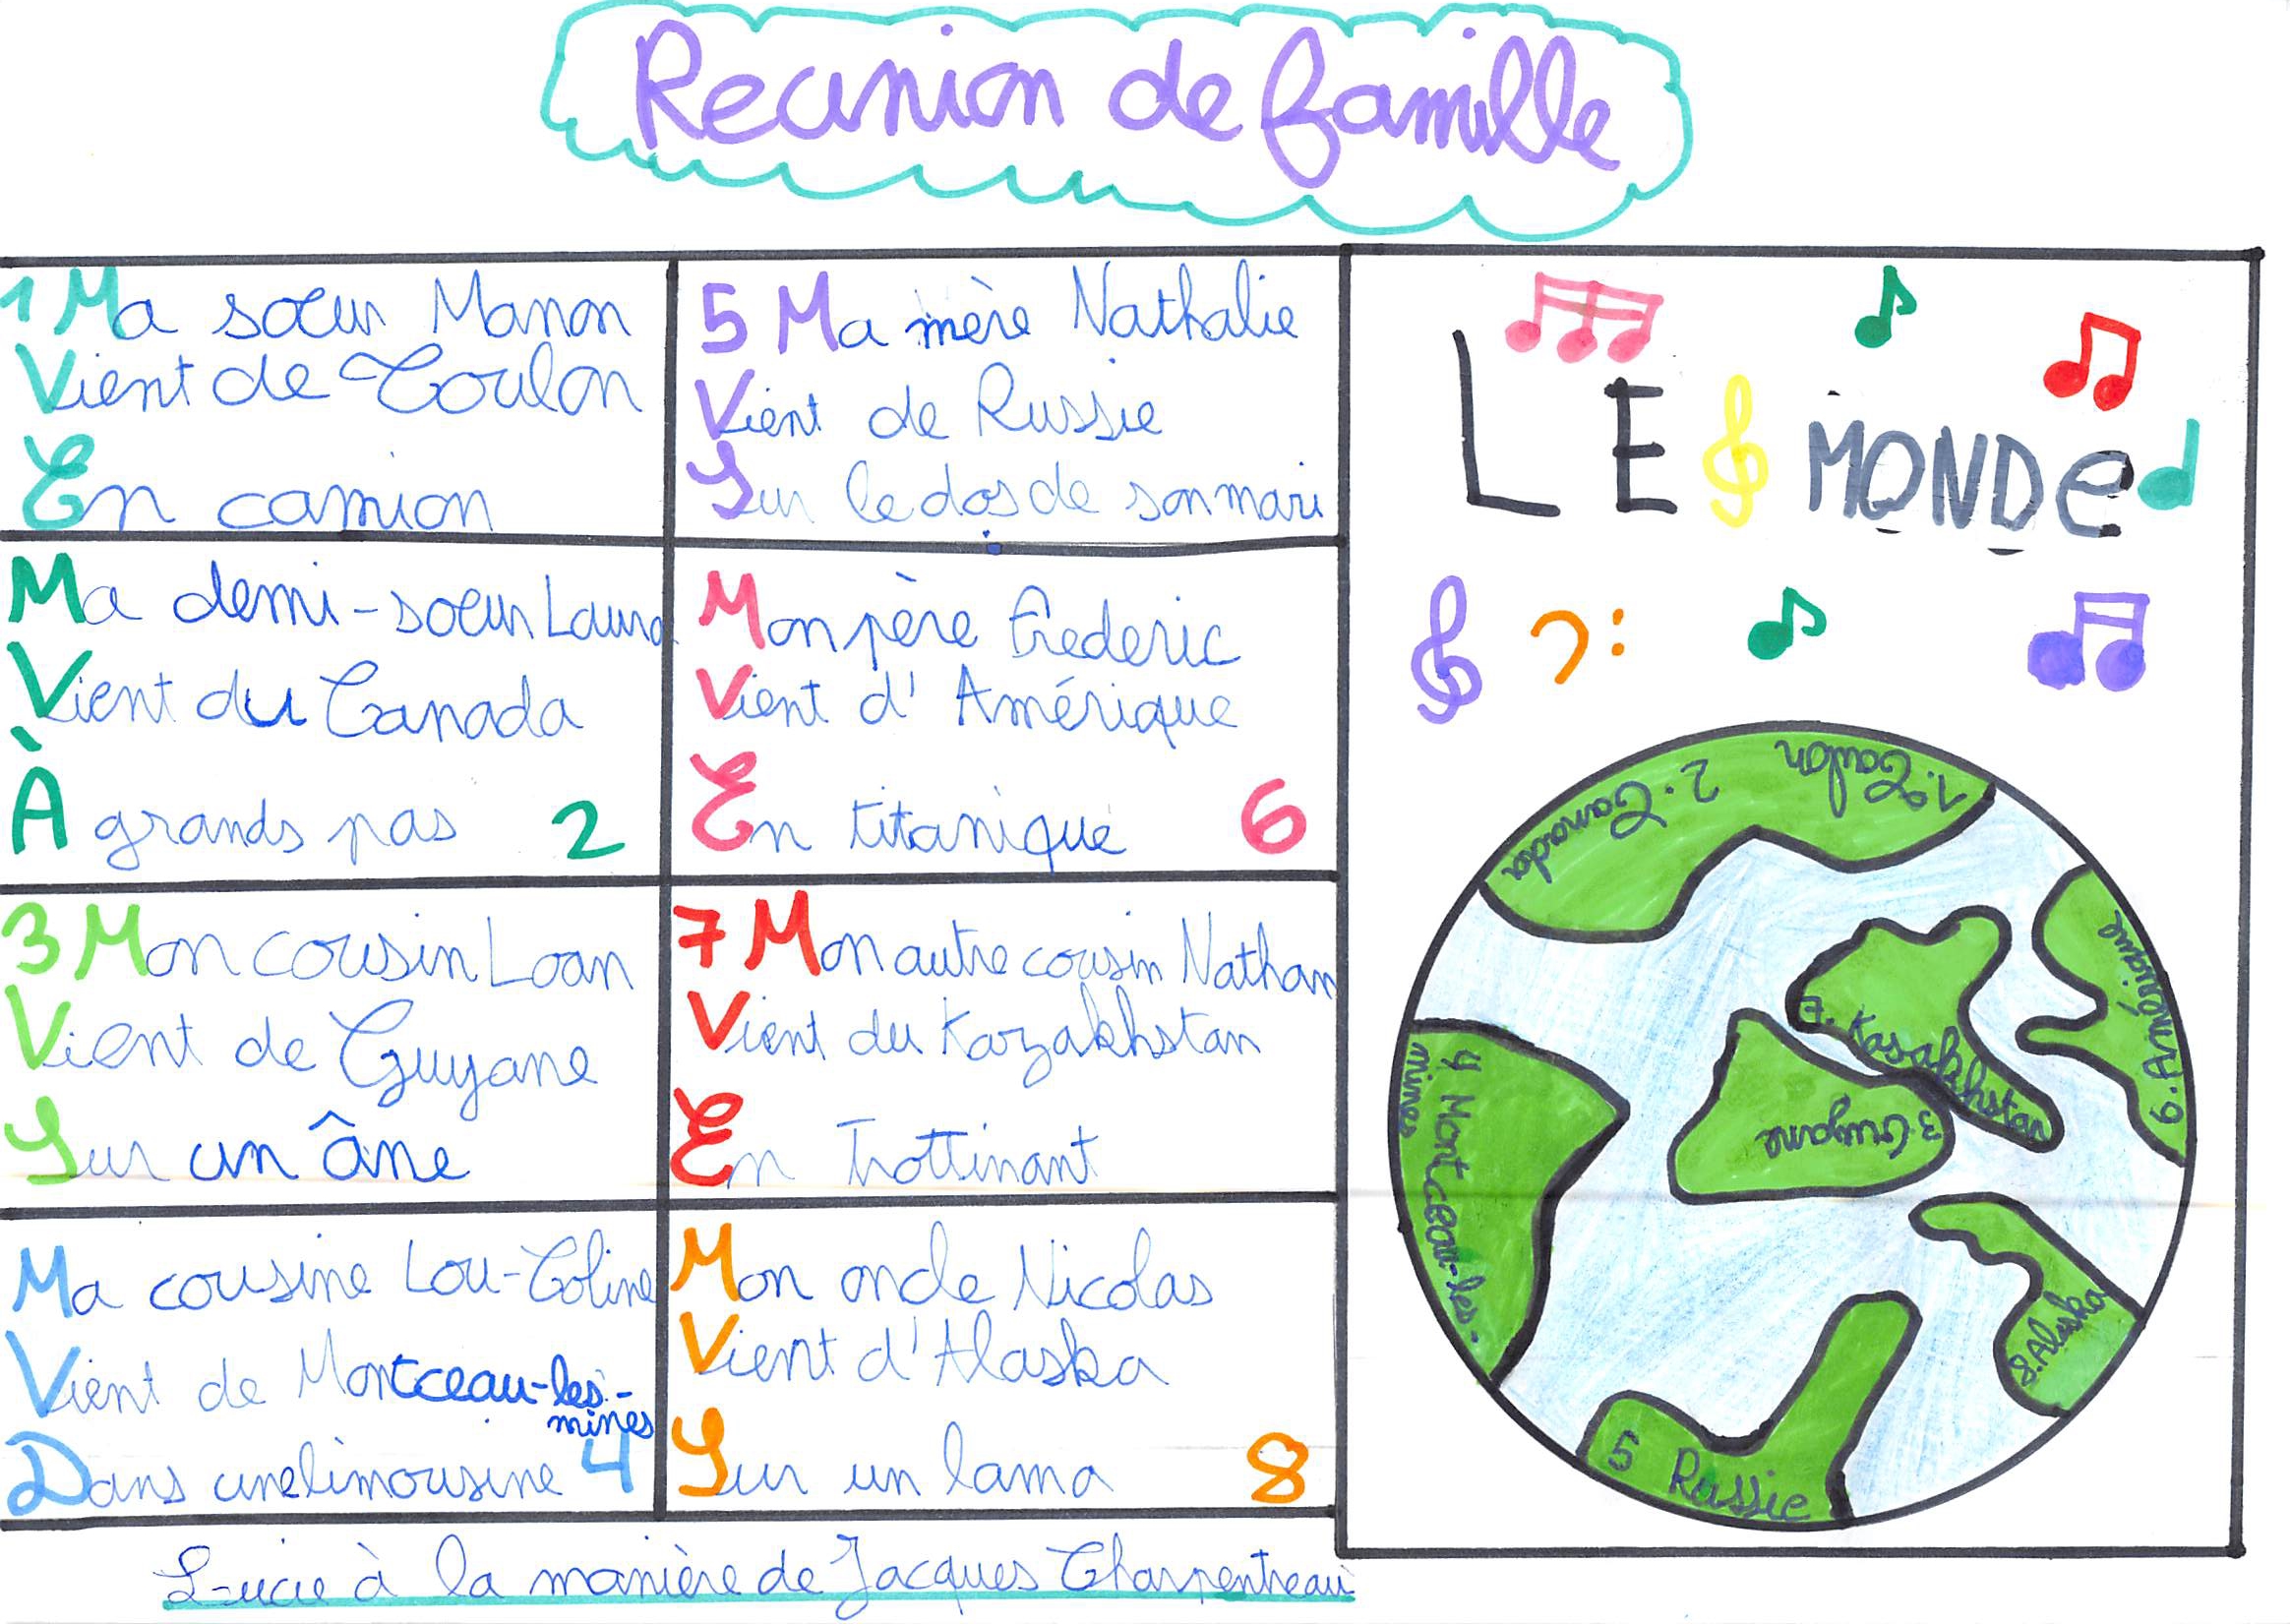 Reunion de famille
1 Ma sœur Manon
Vient de Toulon
En camion
Ma demi-sœur Laura
Vient du Canada
À grands pas 2
3 Mon cousin Loan
Vient de Guyane
Sur un âne
Ma cousine Lou-Coline
Vient de Montceau-les-
mines
Dans une limousine 4
5 Ma mère Nathalie
Vient de Russie
Sur le dos de son mari
Mon père Frederic
Vient d'Amérique
En titanique 6
7 Mon autre cousin Nathan
Vient du Kazakhstan
En Trottinant
Mon oncle Nicolas
Vient d'Alaska
Sur un lama 8
Lucie à la manière de Jacques Charpentreau
LE MONDe
1. Toulon
2. Canada
6. Amérique
7. Kasakhstan
3 Guyane
4 Montceau-les-
mines
8. Alaska
5 Russie